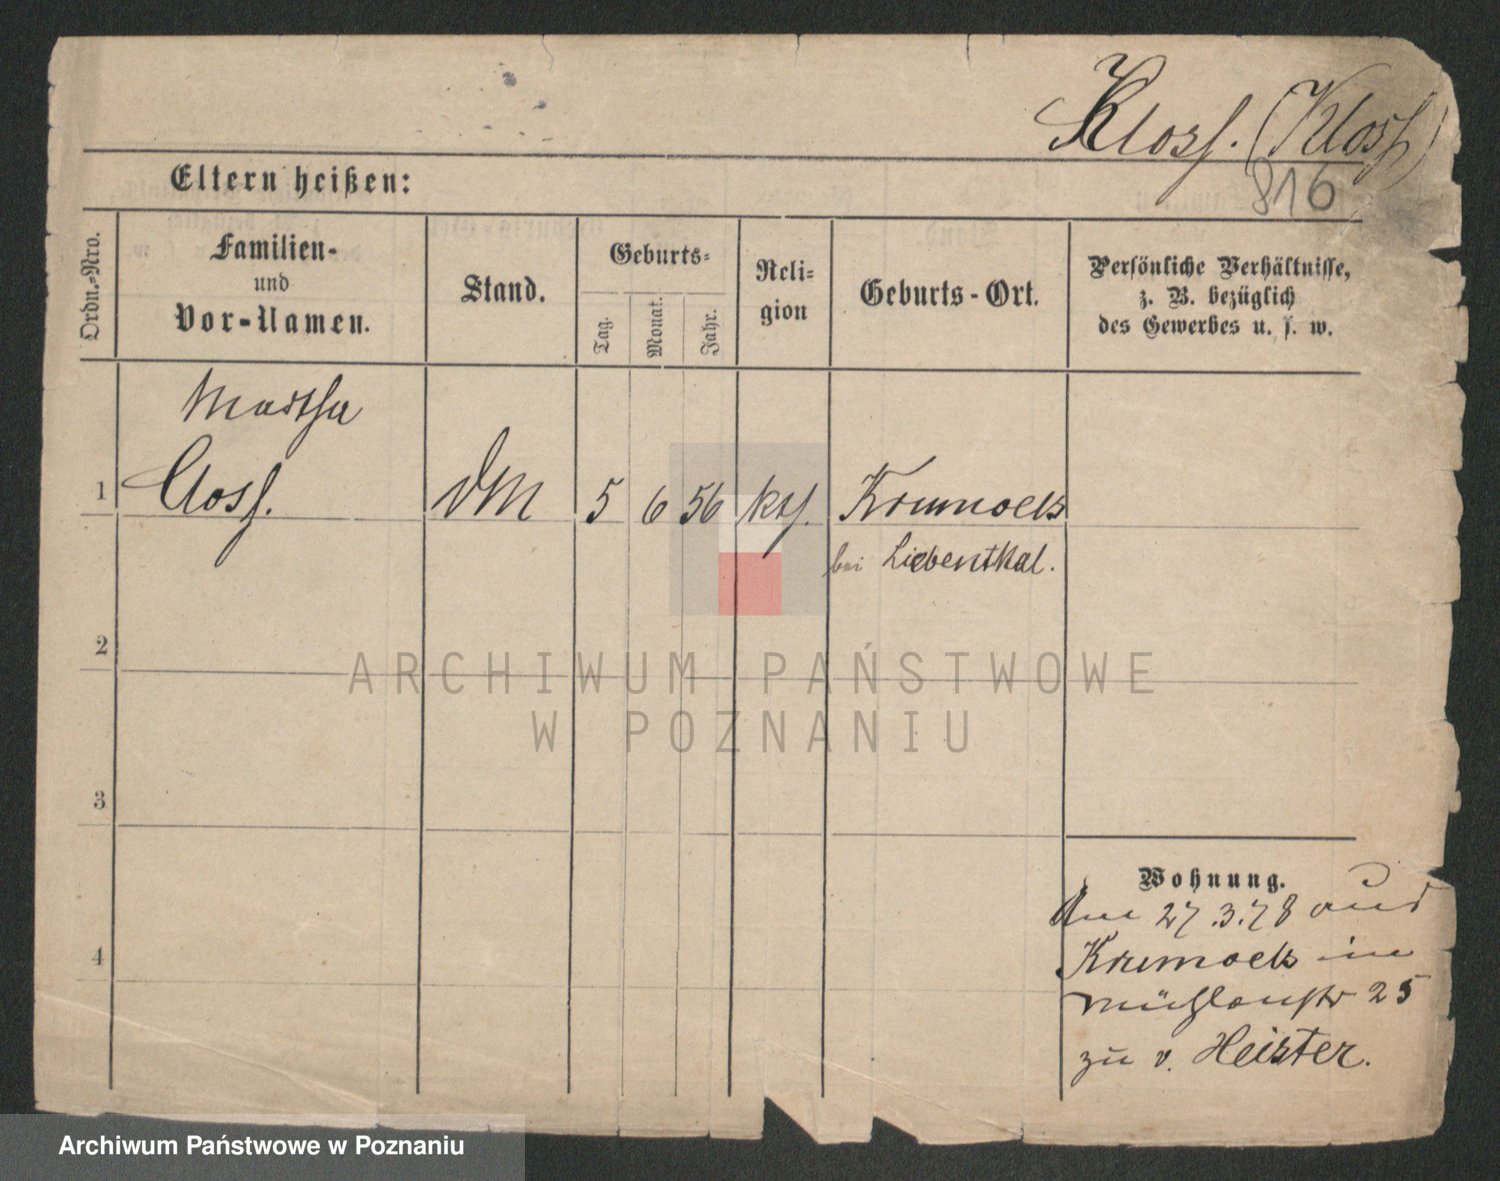 Kloss. (Kloss)
816
Eltern heißen:
Ordn.-Nro.
Familien-
und
Vor-Namen.
Stand.
Geburts-
Tag.
Monat.
Jahr.
Reli-
gion
Geburts-Ort.
Persönliche Verhältnisse,
z. B. bezüglich
des Gewerbes u. s. w.
Martha
1 Closs. DM 5 6 56 kth.
bei Liebenthal.
2
3
4
Wohnung.
Am 27.3.78 aus
in
Mühlenstr 25
zu v. Heister.
ARCHIWUM PAŃSTWOWE
W POZNANIU
Archiwum Państwowe w Poznaniu